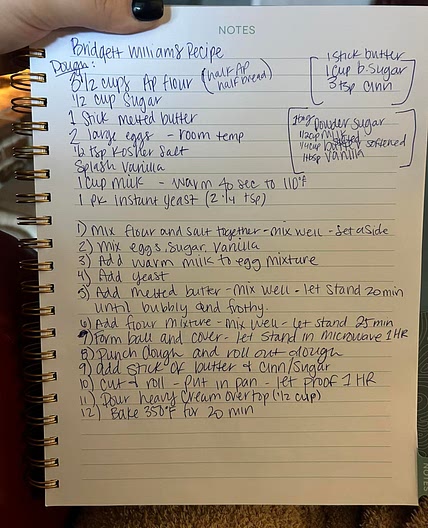 NOTES
Bridgett Williams Recipe
Dough:
1/2 cups Ap flour (half AP half bread)
1/2 cup Sugar
1 Stick melted butter
2 large eggs - room temp
1/2 tsp Kosher Salt
Splash Vanilla
1 cup milk - warm 40 sec to 110°F
1 pk instant yeast (2 1/4 tsp)
1 Stick butter
1 cup b. Sugar
3 tsp Cinn
Powder Sugar
1/2 cup milk
1/4 cup butter softened
1 tbsp vanilla
1) Mix flour and salt together - mix well - Set aside
2) Mix eggs, sugar, vanilla
3) Add warm milk to egg mixture
4) Add yeast
5) Add melted butter - mix well - let stand 20 min
until bubbly and frothy.
6) Add flour mixture - mix well - let stand 25 min
7) Form ball and cover - let stand in microwave 1 HR
8) Punch dough and roll out dough
9) add stick of butter & Cinn/Sugar
10) cut & roll - put in pan - let proof 1 HR
11) Pour heavy cream over top (1/2 cup)
12) Bake 350°F for 20 min
NOTES